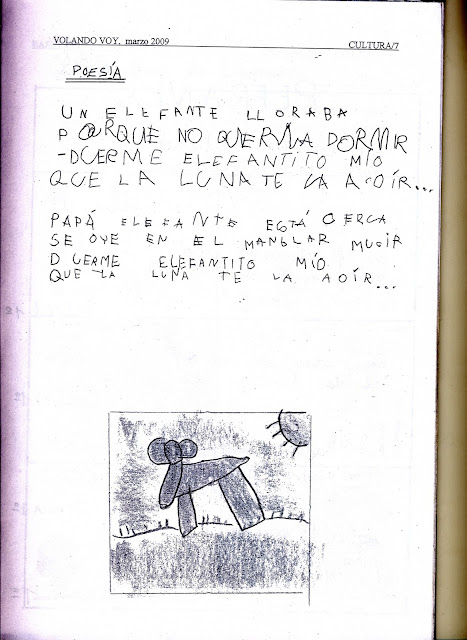 VOLANDO VOY, marzo 2009 CULTURA/7
POESÍA
UN ELEFANTE LLORABA
PORQUE NO QUERÍA DORMIR
-DUERME ELEFANTITO MÍO
QUE LA LUNA TE VA A OÍR...
PAPÁ ELEFANTE ESTÁ CERCA
SE OYE EN EL MANGLAR MUGIR
DUERME ELEFANTITO MÍO
QUE LA LUNA TE VA A OÍR...